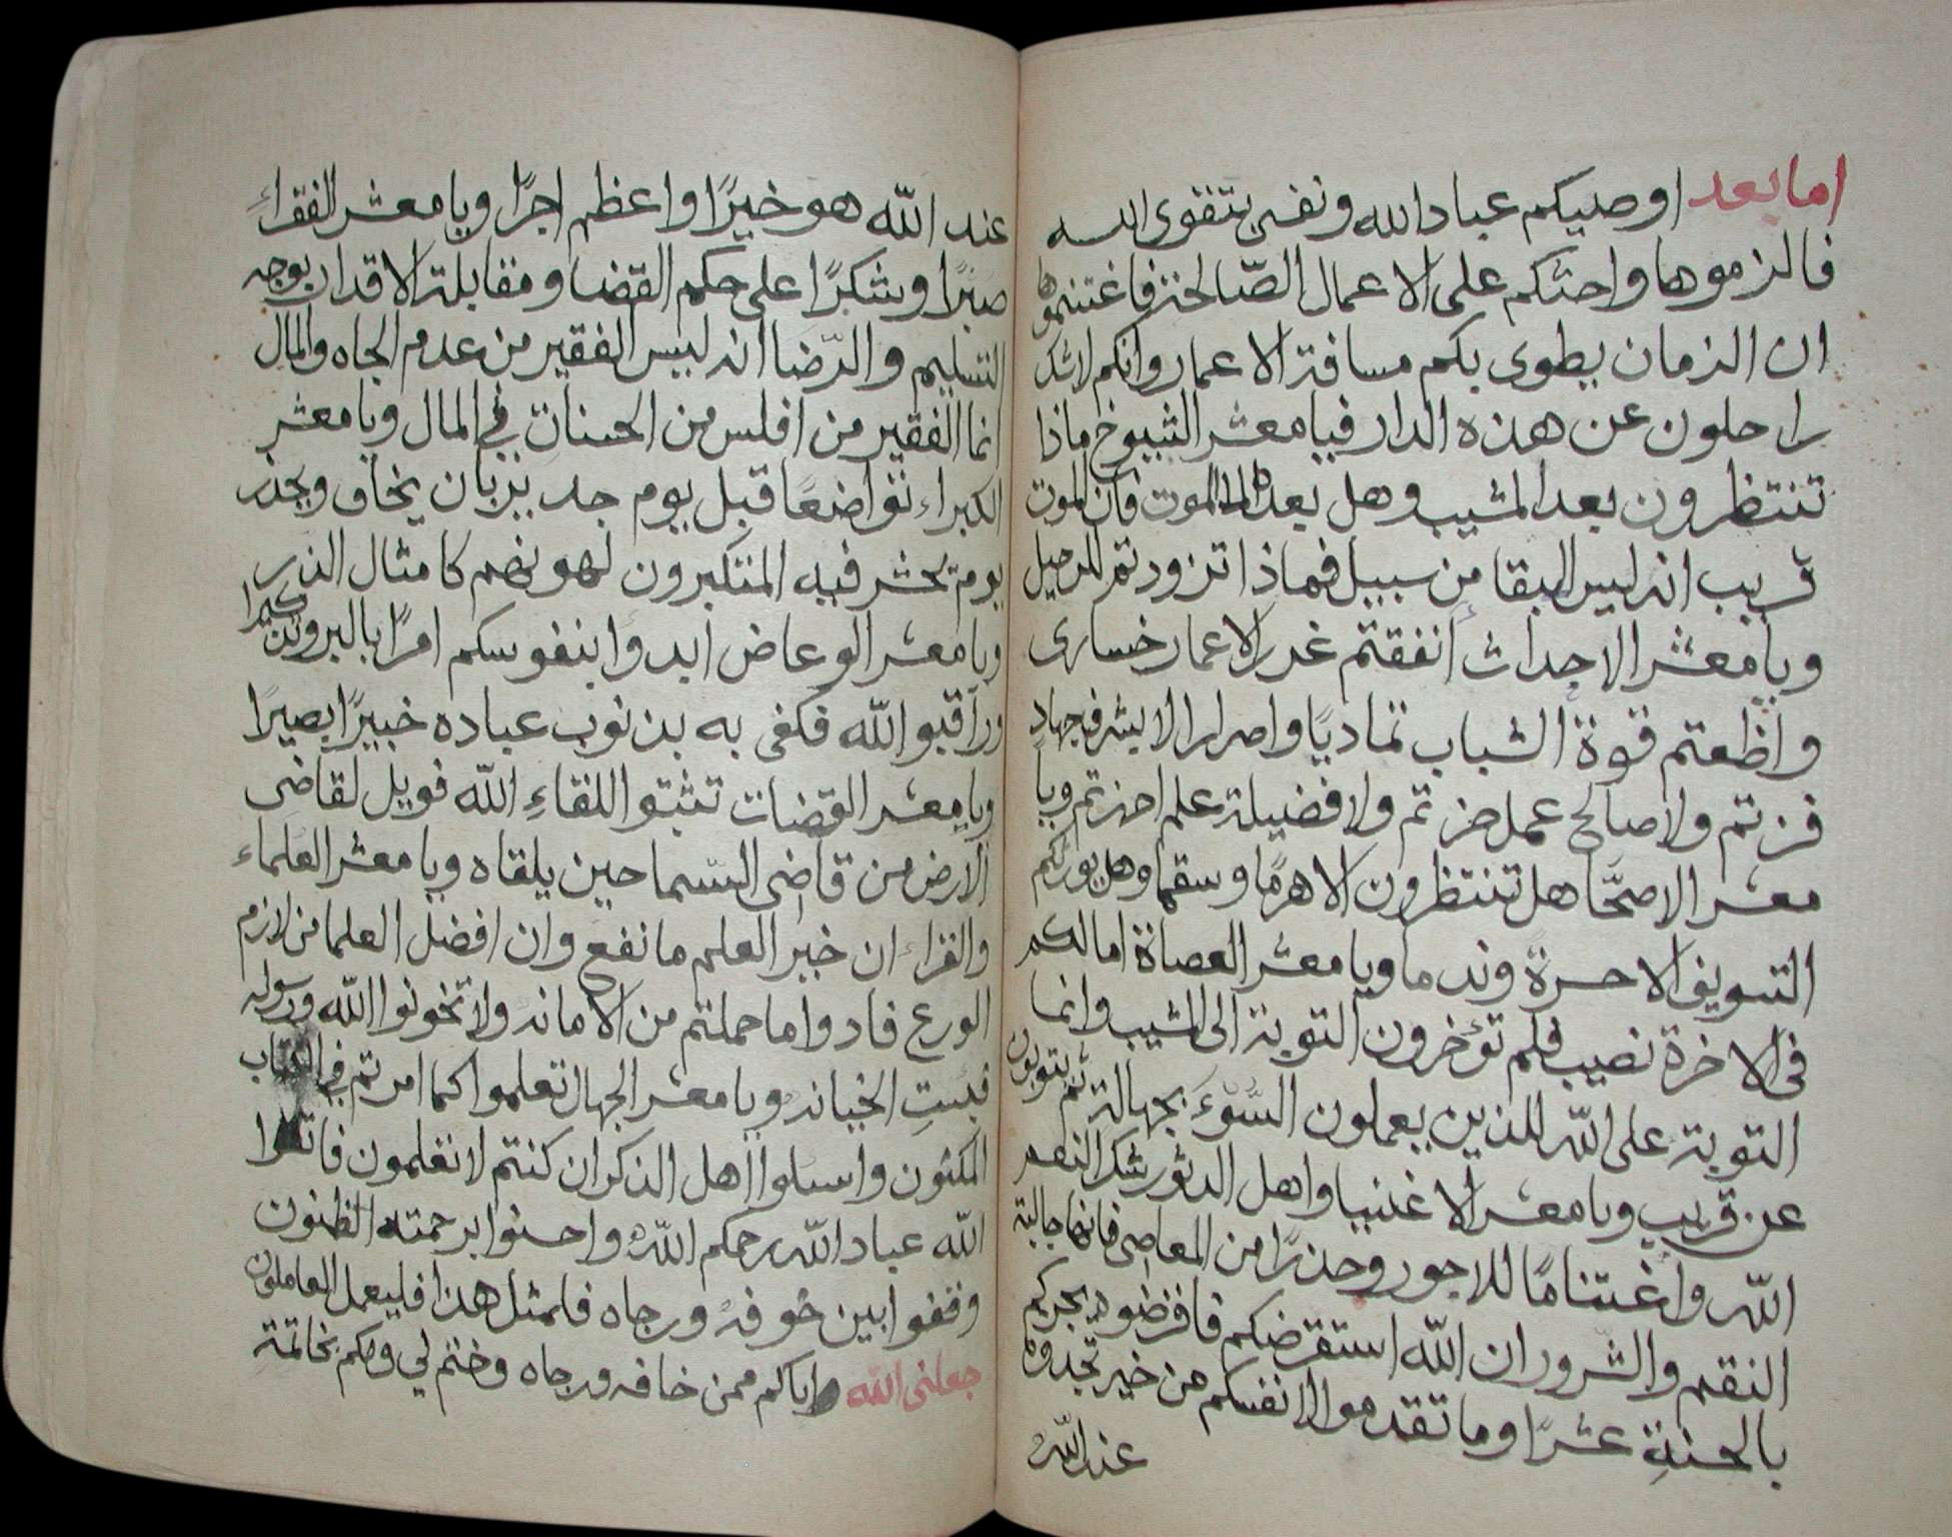 اما بعد اوصيكم عباد الله ونفسي بتقوى الله
فالزموها واحثكم على الاعمال الصّالحة فاغتنموها
ان الزمان يطوى بكم مسافة الاعمار وانكم لاشك
راحلون عن هذه الدار فيا معشر الشيوخ ماذا
تنتظرون بعد المشيب وهل بعد الموت فان الموت
قريب انه ليس البقا من سبيل فماذا تزودتم للرحيل
ويا معشر الاحداث أنفقتم غرر الاعمار خسارى
واظعتم قوة الشباب تماديًا واصرارا لا بشرف جهاد
فزتم ولا صالح عمل حزتم ولا فضيلة علم احزتم ويا
معشر الاصحّا هل تنتظرون الا هرمًا وسقما وهل يورثكم
التسويف الا حسرة وندما ويا معشر العصاة اما لكم
فى الاخرة نصيب فلم تؤخرون التوبة الى المشيب وانما
التوبة على الله للذين يعملون السّوءَ بجهالة ثم يتوبون
عن قريب ويا معشر الاغنيا واهل الدثور شكرا لنعم
الله واغتنامًا للاجور وحذرًا من المعاصى فانها جالبة
النقم والشرور ان الله استقرضكم فاقرضوه يجزيكم
بالحسنةِ عشرًا وما تقدموا لانفسكم من خير تجدوه
عند الله
عند الله هو خيرًا واعظم اجرًا ويا معشر الفقراءِ
صبرًا وشكرًا على حكم القضا ومقابلة الاقدار بوجه
التسليم والرّضا انه ليس الفقير من عدم الجاه والمال
انما الفقير من افلس من الحسنات في المال ويا معشر
الكبراء تواضعًا قبل يوم جدير بان يخاف ويحذر
يوم تحشر فيه المتكبرون لهونهم كامثال الذر
ويا معشر الوعاض ابدوا بنفوسكم امرًا بالبر وتذكيرا
وراقبوا الله فكفى به بذنوب عباده خبيرًا بصيرًا
ويا معشر القضات تثبتوا للقاءِ الله فويل لقاضى
الارض من قاضى السّما حين يلقاه ويا معشر العلماء
والقراء ان خير العلم ما نفع وان افضل العلما من لازم
الورع فادوا ما حملتم من الامانه ولا تخونوا الله ورسوله
فبئستِ الخيانه ويا معشر الجهال تعلموا كما امرتم في الكتاب
المكنون واسئلوا اهل الذكر ان كنتم لا تعلمون فاتقوا
الله عباد الله رحمكم الله واحسنوا برحمته الظنون
وقفوا بين خوفه ورجاه فلمثل هذا فليعمل العاملون
جعلنى الله واياكم ممن خافه ورجاه وختم لي ولكم بخاتمة